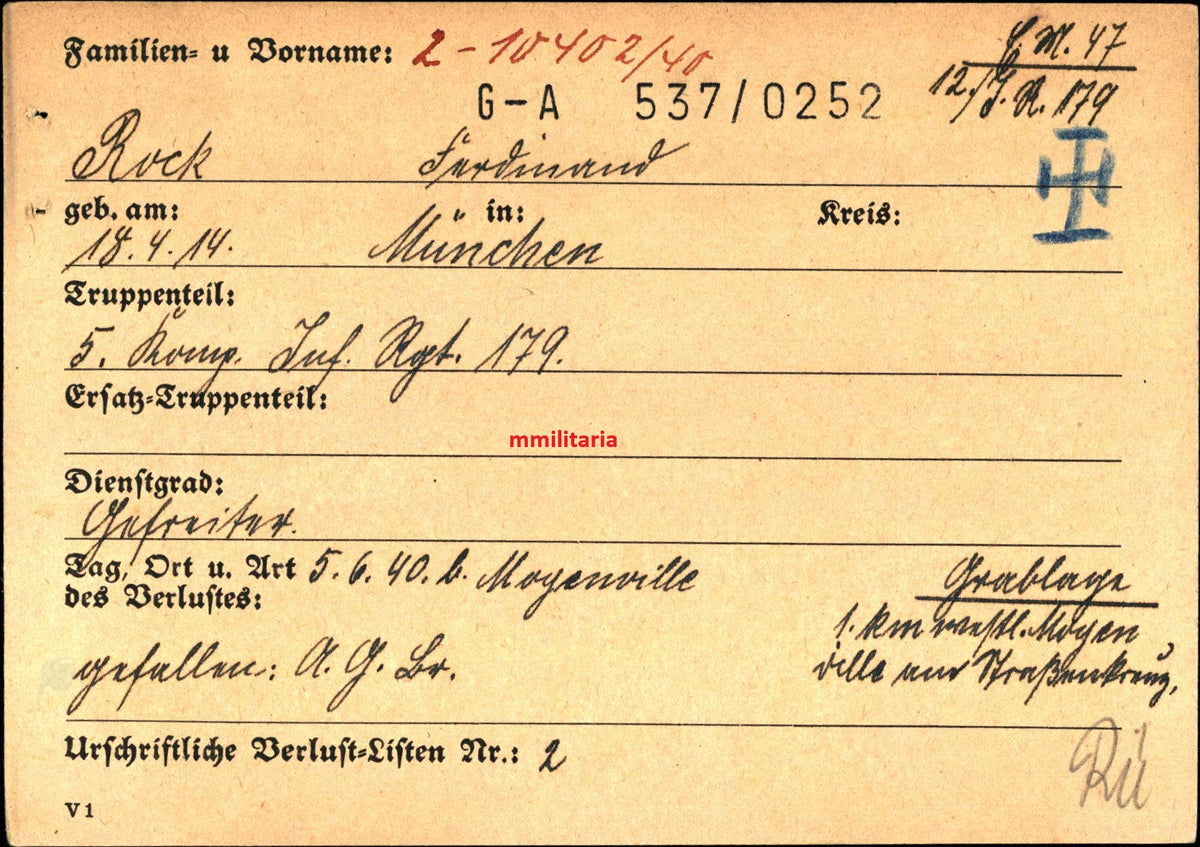 Familien- u Vorname: 2-10402/40
E. M. 47
G-A 537/0252
12./J. R. 179
Rock Ferdinand
geb. am: in: Kreis:
18.4.14. München
Truppenteil:
5. Komp. Inf. Rgt. 179.
Ersatz-Truppenteil:
mmilitaria
Dienstgrad:
Gefreiter.
Tag, Ort u. Art 5.6.40. b. Mogenville
des Verlustes:
gefallen: A. G. Br.
Grablage
1. km westl. Mogen
ville am Straßenkreuz,
Urschriftliche Verlust-Listen Nr.: 2
Rü
V1